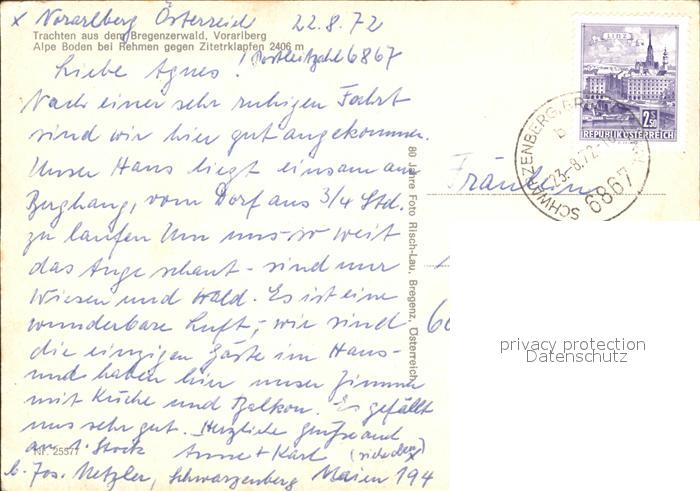 x Vorarlberg Österreich 22.8.72
Trachten aus dem Bregenzerwald, Vorarlberg
Alpe Boden bei Rehmen gegen Zitetrklapfen 2406 m
Postleitzahl 6867
Liebe Agnes!
Nach einer sehr ruhigen Fahrt
sind wir hier gut angekommen.
Unser Haus liegt einsam am
Berghang, vom Dorf aus 3/4 Std.
zu laufen. Um uns so weit
das Auge schaut - sind nur
Wiesen und Wald. Es ist eine
wunderbare Luft, wir sind
die einzigen Gäste im Haus -
und haben hier unser Zimmer
mit Küche und Balkon. Es gefällt
uns sehr gut. Herzliche Grüße
1. Stock Anne + Karl (siehe oben x)
Nr. 25377
b. Jos. Metzler, Schwarzenberg Maien 194
80 Jahre Foto Risch-Lau, Bregenz, Österreich
LINZ
2.50
REPUBLIK ÖSTERREICH
SCHWARZENBERG, BREGENZ
b
23.-8.72
6867
Fräulein
60
privacy protection
Datenschutz